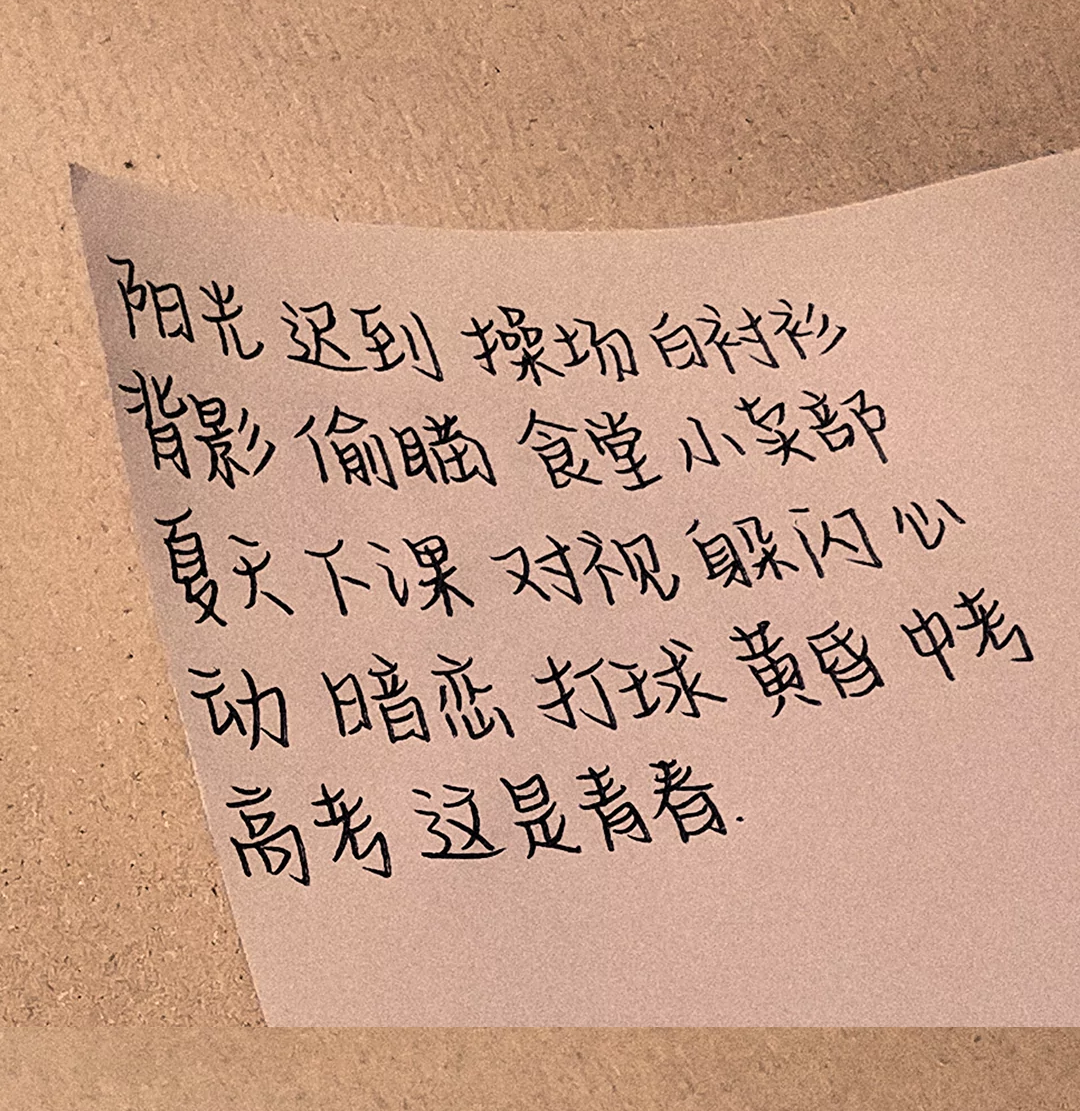 阳光 迟到 操场 白衬衫
背影 偷瞄 食堂 小卖部
夏天 下课 对视 躲闪 心
动 暗恋 打球 黄昏 中考
高考 这是青春.